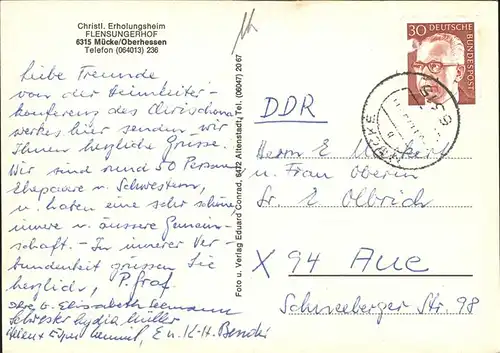 Christl. Erholungsheim
FLENSUNGERHOF
6315 Mücke/Oberhessen
Telefon (064013) 236
Liebe Freunde
von der Heimleiter-
konferenz des
werkes hier senden wir
Ihnen herzliche Grüsse.
Wir sind rund 50 Personen
Ehepaare u. Schwestern,
u. haben eine sehr schöne
innere u. äussere Gemein-
schaft. - In innerer Ver-
bundenheit grüssen Sie
herzlich, P. Graf
u. Elisabeth
Schwester Lydia Müller
E. u. K.-H.
Foto u. Verlag Eduard Conrad, 6472 Altenstadt, Tel. (06047) 2067
30 DEUTSCHE
BUNDESPOST
6315
MÜCKE
DDR
Herrn E
u. Frau Oberin
Sr. E Olbrich
X 94 Aue
Schneeberger Str. 98